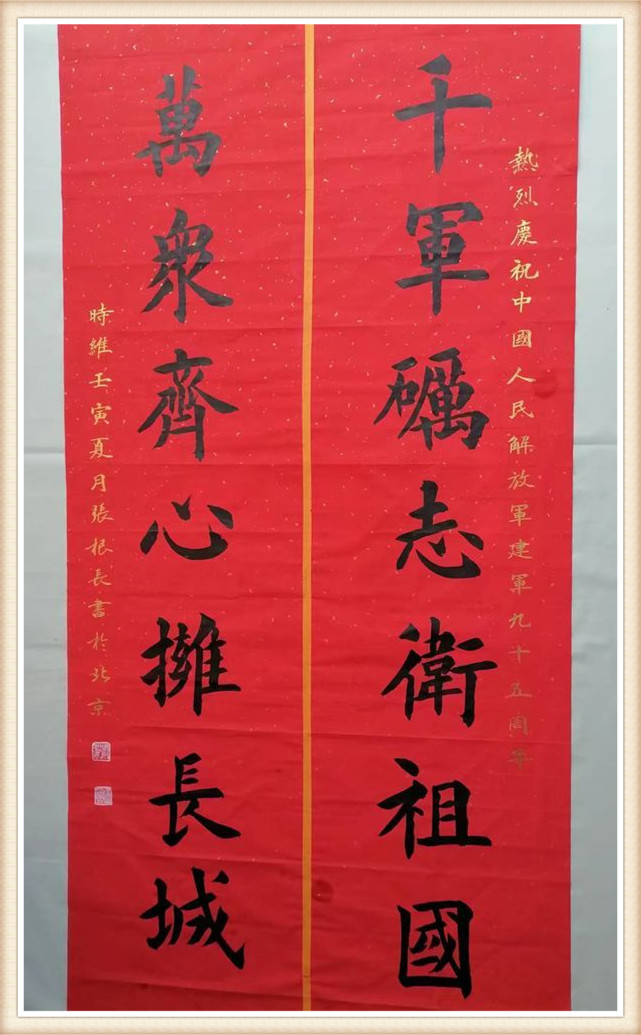 熱烈慶祝中國人民解放軍建軍九十五周年
千軍礪志衛祖國
萬衆齊心擁長城
時維壬寅夏月張根長書於北京